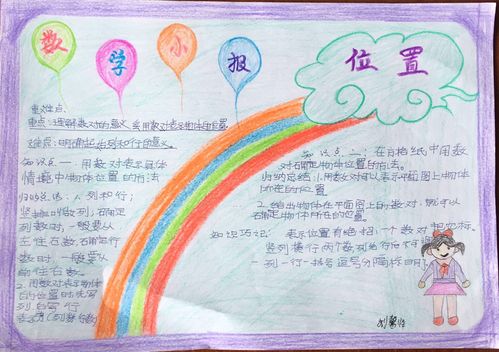 数学小报
位置
重难点:
重点:理解数对的意义,会用数对表示物体的位置。
难点:明确起出列和行的意义。
知识点一:用数对表示具体
情境中物体位置的方法
归纳总结:1.列和行;
竖排叫做列,确定
列数时,一般从
左往右数,确定行
数时,一般从
前往后数。
2.用数对表示物体
的位置时先写
列后写行
表示为(列数,行数)
知识点二:在方格纸中用数
对确定物体位置的方法。
归纳总结:1.用数对可以表示平面图上物体
所在的位置
2.给出物体在平面图上的数对,就可以
确定物体所在的位置。
知识巧记:表示位置有绝招,一个数对把它标。
竖列横行两个数
一列一行一括号逗号分隔标明